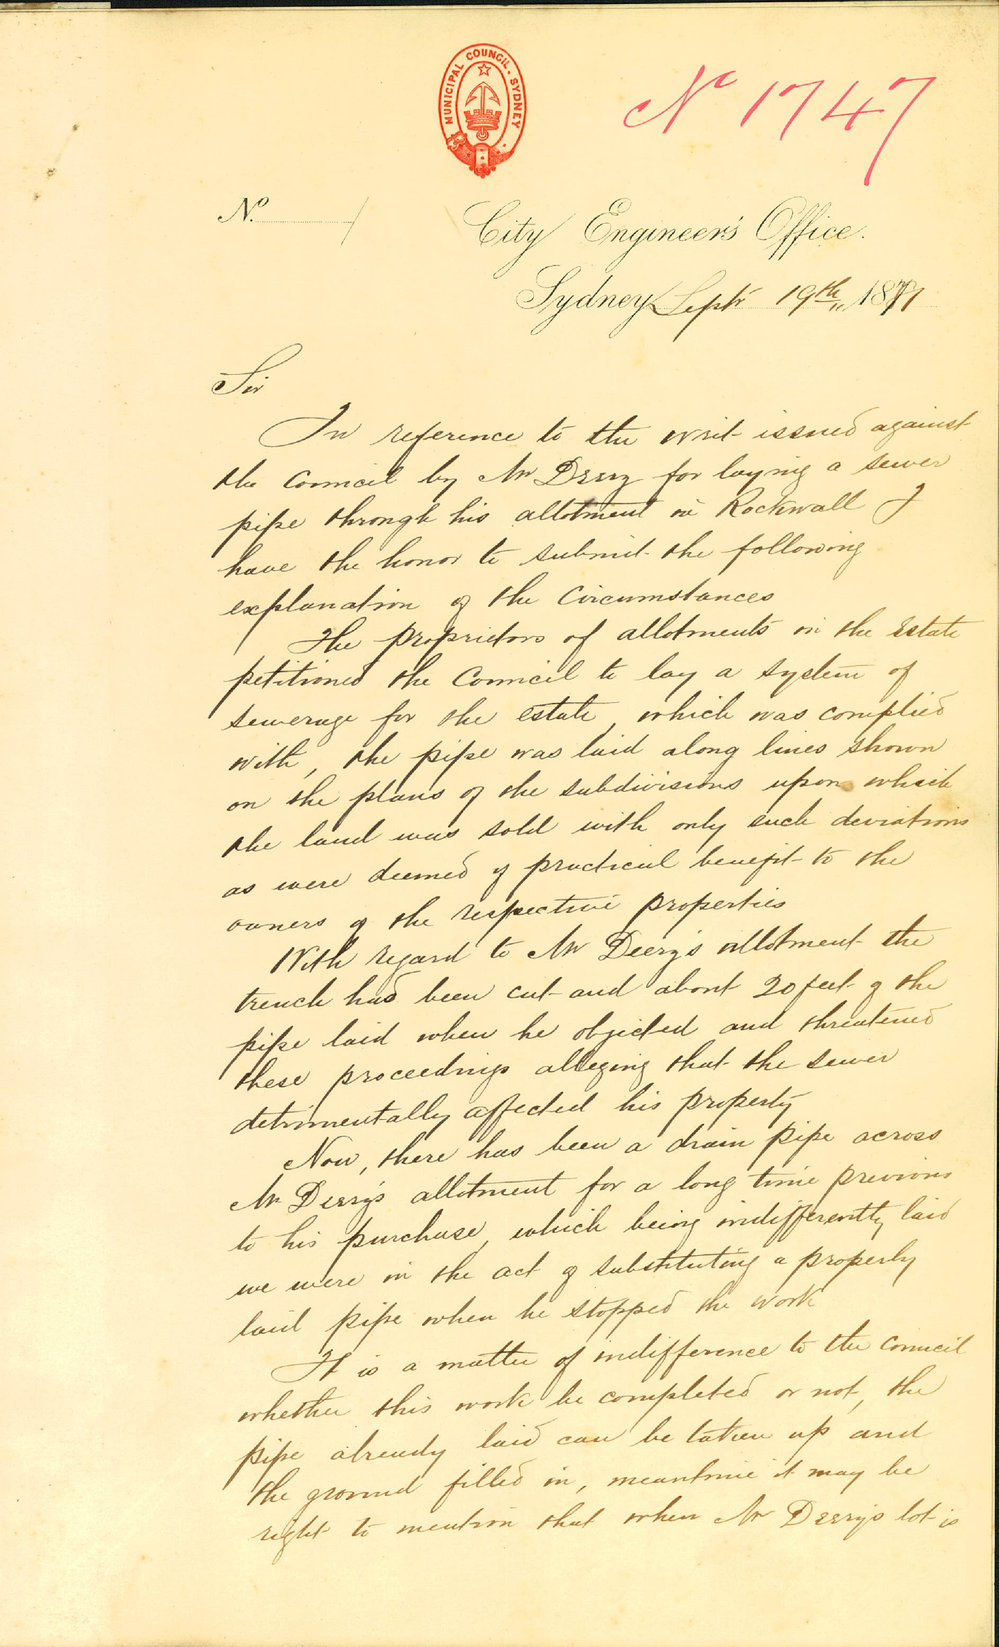 MUNICIPAL COUNCIL. SYDNEY.
No 1747
No.
City Engineer's Office.
Sydney Septr 19th 1871
Sir
In reference to the writ issued against
the Council by Mr Deery for laying a sewer
pipe through his allotment in Rockwall I
have the honor to submit the following
explanation of the circumstances
The proprietors of allotments in the Estate
petitioned the Council to lay a system of
sewerage for the estate, which was complied
with, the pipe was laid along lines shown
on the plans of the subdivisions upon which
the land was sold with only such deviations
as were deemed of practical benefit to the
owners of the respective properties
With regard to Mr Deery's allotment the
trench had been cut and about 20 feet of the
pipe laid when he objected and threatened
these proceedings alleging that the sewer
detrimentally affected his property
Now, there has been a drain pipe across
Mr Deery's allotment for a long time previous
to his purchase, which being indifferently laid
we were in the act of substituting a properly
laid pipe when he stopped the work
It is a matter of indifference to the Council
whether this work be completed or not, the
pipe already laid can be taken up and
the ground filled in, meantime it may be
right to mention that when Mr Deery's lot is